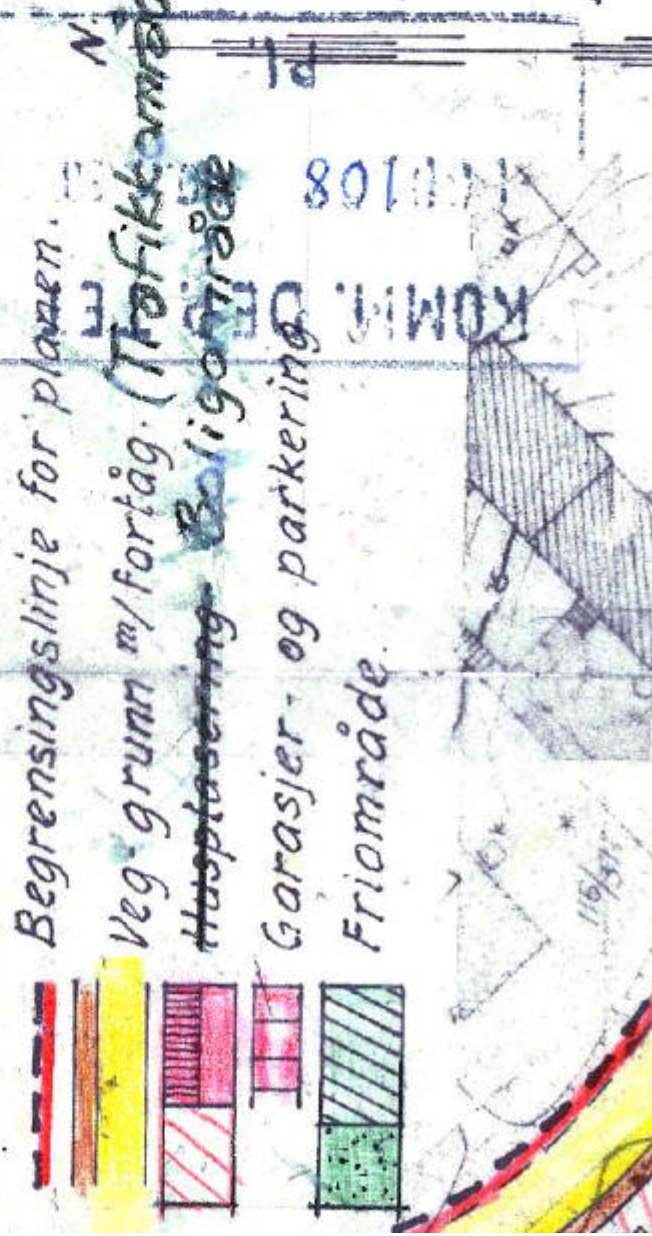 Begrensingslinje for planen.
Veg grunn m/fortåg. (Trafikkområd
Husplasering Boligområde
Garasjer- og parkering
Friområde.
N
pl
108
KOMM. DEL
116/371